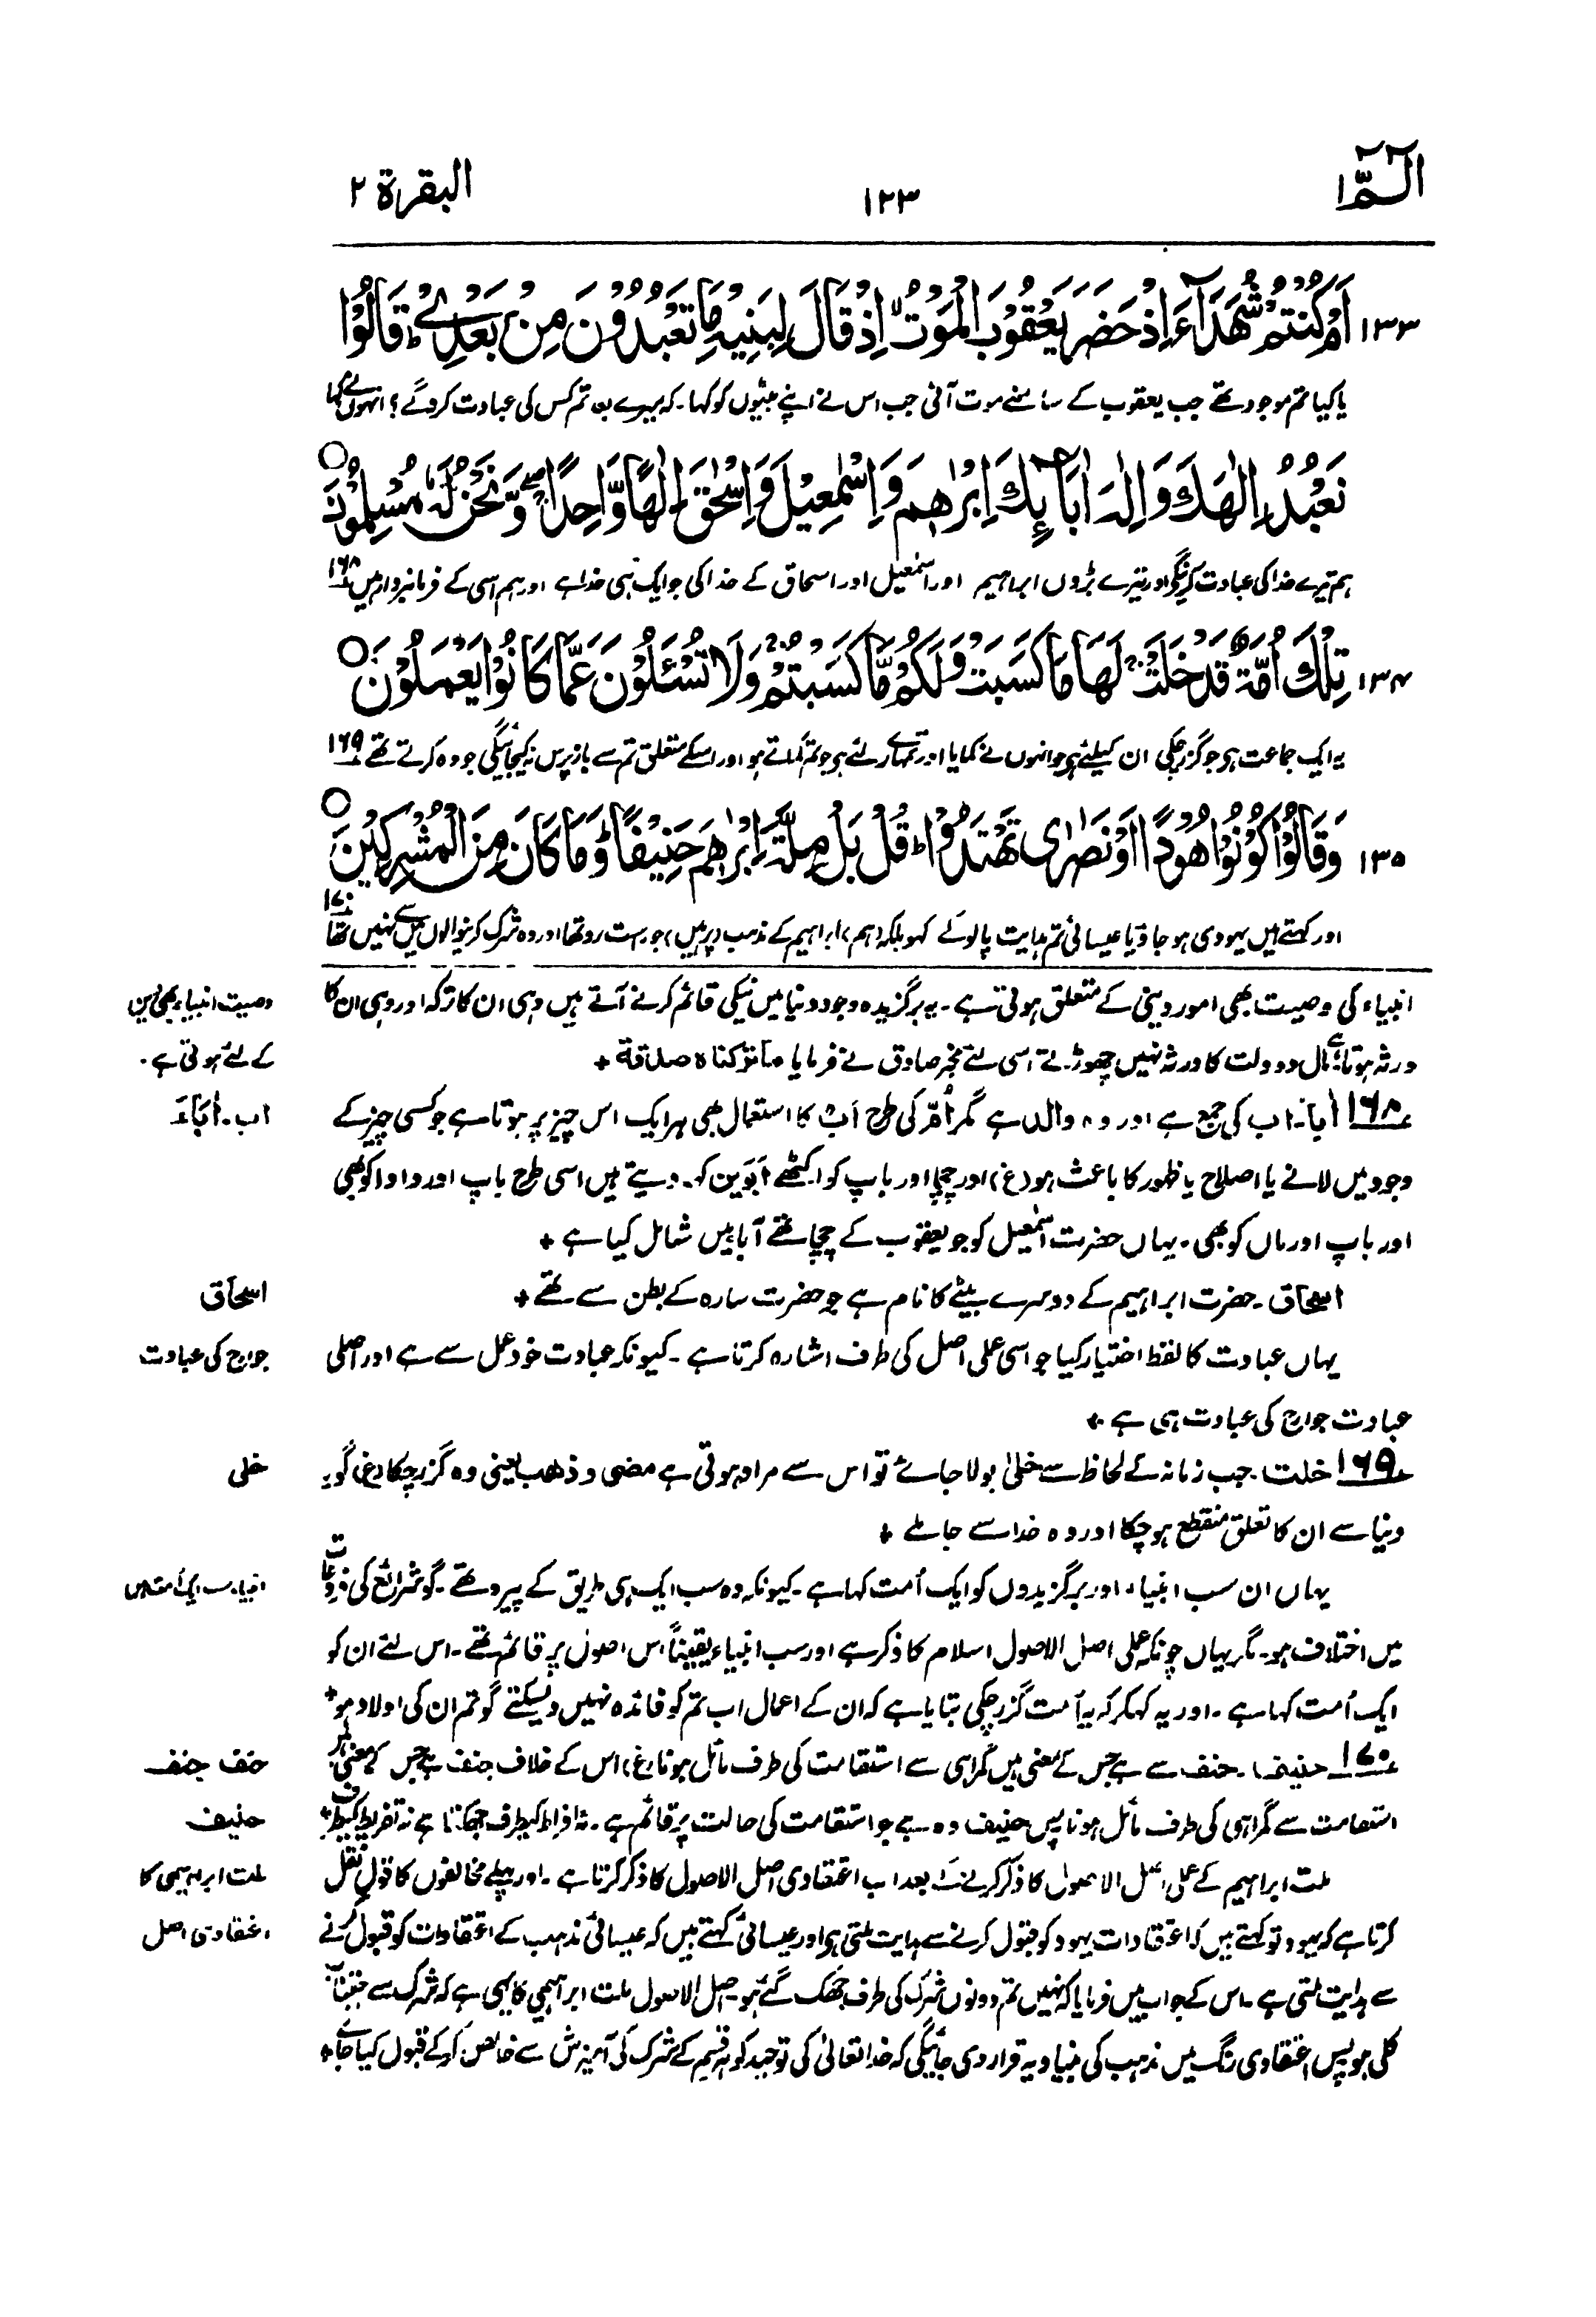 الٓمّٓ ١
١٢٣
البقرة ٢
١٣٣ اَمْ كُنْتُمْ شُهَدَآءَ اِذْ حَضَرَ يَعْقُوْبَ الْمَوْتُ ۙ اِذْ قَالَ لِبَنِيْهِ مَا تَعْبُدُوْنَ مِنْۢ بَعْدِيْ ؕ قَالُوْا
یا کیا تم موجود تھے جب یعقوب کے سامنے موت آئی جب اس نے اپنے بیٹوں کو کہا۔ کہ میرے بعد تم کس کی عبادت کروگے؟ انہوں نے کہا
نَعْبُدُ اِلٰهَكَ وَ اِلٰهَ اٰبَآئِكَ اِبْرٰهٖمَ وَ اِسْمٰعِيْلَ وَ اِسْحٰقَ اِلٰهًا وَّاحِدًا ۖۚ وَّ نَحْنُ لَهٗ مُسْلِمُوْنَ ○
ہم تیرے خدا کی عبادت کرینگے اور تیرے بڑوں ابراہیم اور اسمٰعیل اور اسحاق کے خدا کی جو ایک ہی خدا ہے اور ہم اسی کے فرمانبردار ہیں ۱۶۸
١٣٤ تِلْكَ اُمَّةٌ قَدْ خَلَتْ ۚ لَهَا مَا كَسَبَتْ وَ لَكُمْ مَّا كَسَبْتُمْ ۚ وَ لَا تُسْـَٔلُوْنَ عَمَّا كَانُوْا يَعْمَلُوْنَ ○
یہ ایک جماعت ہے جو گزر چکی ان کیلئے ہے جو انہوں نے کمایا اور تمہارے لئے ہے جو تم کماتے ہو اور اسکے متعلق تم سے بازپرس نہ کیجائیگی جو وہ کرتے تھے ۱۶۹
١٣٥ وَ قَالُوْا كُوْنُوْا هُوْدًا اَوْ نَصٰرٰى تَهْتَدُوْا ؕ قُلْ بَلْ مِلَّةَ اِبْرٰهٖمَ حَنِيْفًا ؕ وَ مَا كَانَ مِنَ الْمُشْرِكِيْنَ ○
اور کہتے ہیں یہودی ہو جاؤ یا عیسائی تم ہدایت پالو گے کہو بلکہ (ہم) ابراہیم کے مذہب (پر ہیں) جو راست رو تھا اور وہ شرک کرنیوالوں میں سے نہیں تھا ۱۷۰
انبیاء کی وصیت بھی امور دینی کے متعلق ہوتی ہے۔ یہ برگزیدہ وجود دنیا میں نیکی قائم کرنے آتے ہیں وہی ان کا ترکہ اور وہی ان کا
وصیت انبیاء بھی دین
ورثہ ہوتا ہے مال و دولت کا ورثہ نہیں چھوڑتے اسی لئے مخبر صادق نے فرمایا ما ترکناہ صدقة +
کے لئے ہوتی ہے۔
۱۶۸ اٰباء۔ اب کی جمع ہے اور وہ والد ہے مگر اُمّ کی طرح اَبٌ کا استعمال بھی ہر ایک اس چیز پر ہوتا ہے جو کسی چیز کے
اب۔ اٰبَاء
وجود میں لانے یا اصلاح یا ظہور کا باعث ہو (غ) اور چچا اور باپ کو اکٹھے اَبَوَین کہہ دیتے ہیں اسی طرح باپ اور دادا کو بھی
اور باپ اور ماں کو بھی۔ یہاں حضرت اسمٰعیل کو جو یعقوب کے چچا تھے آباء میں شامل کیا ہے +
اسحٰاق۔ حضرت ابراہیم کے دوسرے بیٹے کا نام ہے جو حضرت سارہ کے بطن سے تھے +
اسحٰاق
یہاں عبادت کا لفظ اختیار کیا جو اسی عملی اصل کی طرف اشارہ کرتا ہے۔ کیونکہ عبادت خود عمل سے ہے اور اصلی
جوارح کی عبادت
عبادت جوارح کی عبادت ہی ہے +
۱۶۹ خلت۔ جب زمانہ کے لحاظ سے خلیٰ بولا جائے تو اس سے مراد ہوتی ہے مضی و ذھب یعنی وہ گزر چکا (غ) گویا
خلی
دنیا سے ان کا تعلق منقطع ہو چکا اور وہ خدا سے جا ملے +
یہاں ان سب انبیاء اور برگزیدوں کو ایک اُمت کہا ہے۔ کیونکہ وہ سب ایک ہی طریق کے پیرو تھے۔ گو شرائع کی فروعات
انبیاء سب ایک اُمت ہیں
میں اختلاف ہو۔ مگر یہاں چونکہ عملی اصل الاصول اسلام کا ذکر ہے اور سب انبیاء یقیناً اس اصول پر قائم تھے۔ اس لئے ان کو
ایک اُمت کہا ہے۔ اور یہ کہکر کہ یہ اُمت گزر چکی بتایا ہے کہ ان کے اعمال اب تم کو فائدہ نہیں دیسکتے گو تم ان کی اولاد ہو +
۱۷۰ حنیفا۔ حنف سے ہے جس کے معنی ہیں گمراہی سے استقامت کی طرف مائل ہونا (غ) اس کے خلاف جنف ہے جس کے معنی ہیں
حنف جنف
استقامت سے گمراہی کی طرف مائل ہونا پس حنیف وہ ہے جو استقامت کی حالت پر قائم ہے۔ نہ افراط کیطرف جھکتا ہے نہ تفریط کیطرف +
حنیف
ملت ابراہیم کے عملی اصل الاصول کا ذکر کرنے کے بعد اب اعتقادی اصل الاصول کا ذکر کرتا ہے۔ اور پہلے مخالفوں کا قول نقل
ملت ابراہیمی کا
کرتا ہے کہ یہود تو کہتے ہیں کہ اعتقادات یہود کو قبول کرنے سے ہدایت ملتی ہے اور عیسائی کہتے ہیں کہ عیسائی مذہب کے اعتقادات کو قبول کرنے
اعتقادی اصل
سے ہدایت ملتی ہے۔ اس کے جواب میں فرمایا کہ نہیں تم دونوں شرک کی طرف جھک گئے ہو۔ اصل الاصول ملت ابراہیمی کا یہی ہے کہ شرک سے اجتناب
کلی ہو پس اعتقادی رنگ میں مذہب کی بنیاد یہ قرار دی جائیگی کہ خدا تعالیٰ کی توحید کو ہر قسم کے شرک کی آمیزش سے خالص کرکے قبول کیا جائے +